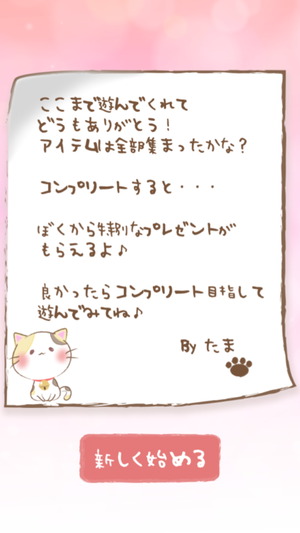 ここまで遊んでくれて
どうもありがとう！
アイテムは全部集まったかな？
コンプリートすると・・・
ぼくから特別なプレゼントが
もらえるよ♪
良かったらコンプリート目指して
遊んでみてね♪
By たま
新しく始める